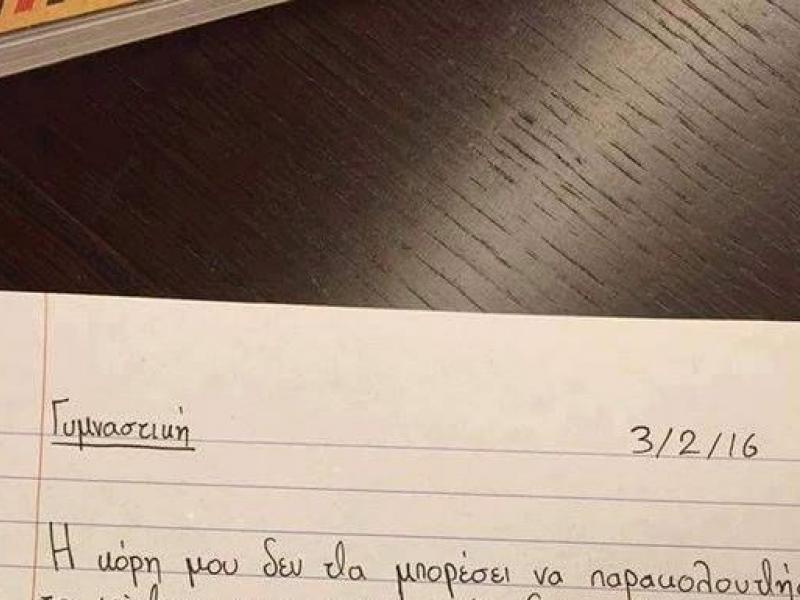 Γυμναστική
3/2/16
Η κόρη μου δεν θα μπορέσει να παρακολουθήσ